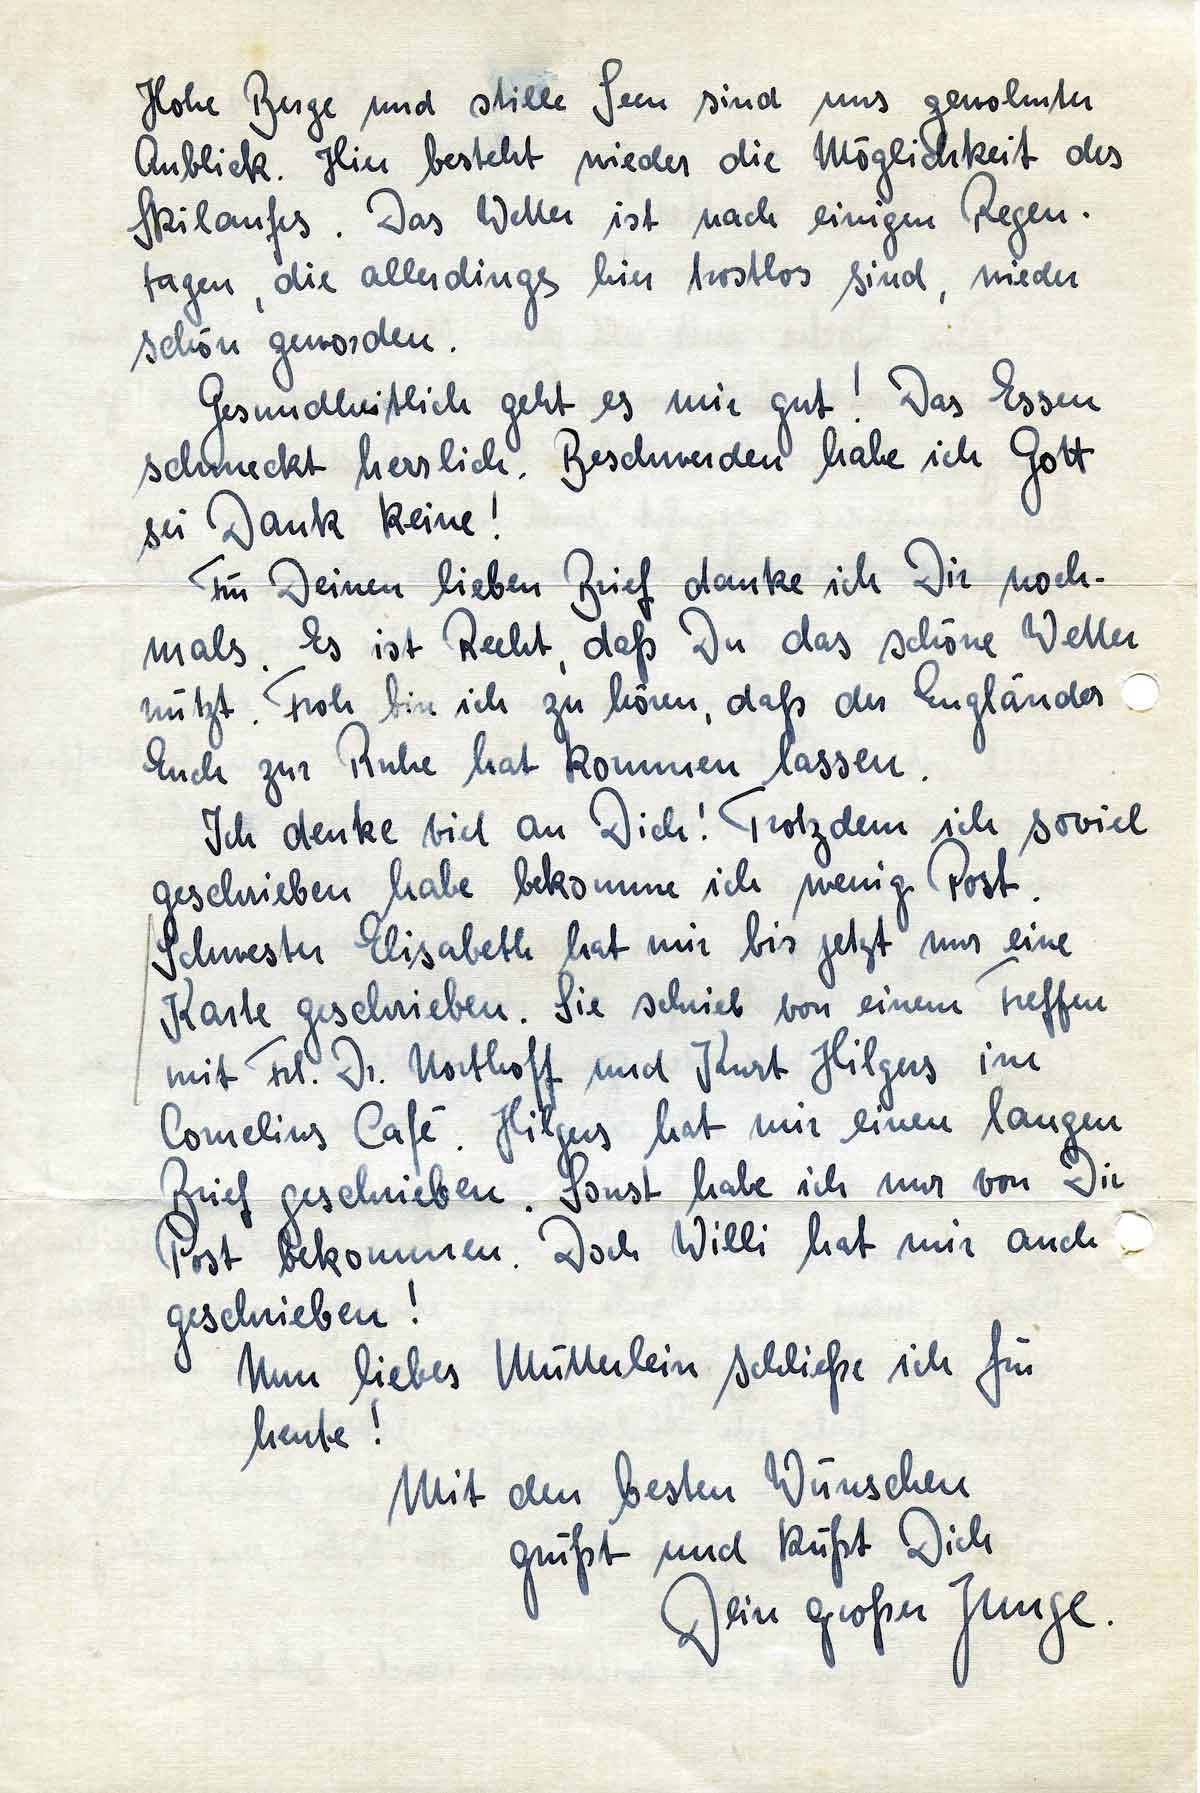 Hohe Berge und stille Seen sind uns gewohnter
Anblick. Hier besteht wieder die Möglichkeit des
Skilaufes. Das Wetter ist nach einigen Regen-
tagen, die allerdings hier trostlos sind, wieder
schön geworden.
Gesundheitlich geht es mir gut! Das Essen
schmeckt herrlich. Beschwerden habe ich Gott
sei Dank keine!
Für Deinen lieben Brief danke ich Dir noch-
mals. Es ist Recht, daß Du das schöne Wetter
nützt. Froh bin ich zu hören, daß der Engländer
Euch zur Ruhe hat kommen lassen.
Ich denke viel an Dich! Trotzdem ich soviel
geschrieben habe bekomme ich wenig Post.
Schwester Elisabeth hat mir bis jetzt nur eine
Karte geschrieben. Sie schrieb von einem Treffen
mit Frl. Dr. Northoff und Kurt Hilgers im
Cornelius Café. Hilgers hat mir einen langen
Brief geschrieben. Sonst habe ich nur von Dir
Post bekommen. Doch Willi hat mir auch
geschrieben!
Nun liebes Mütterlein schließe ich für
heute!
Mit den besten Wünschen
grüßt und küßt Dich
Dein großer Junge.